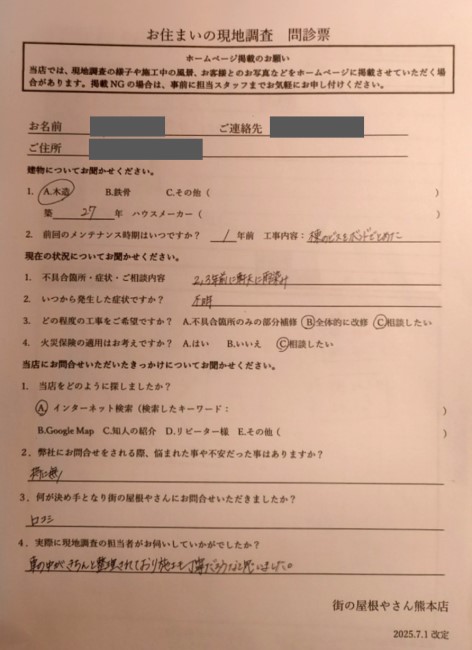 お住まいの現地調査　問診票
ホームページ掲載のお願い
当店では、現地調査の様子や施工中の風景、お客様とのお写真などをホームページに掲載させていただく場
合があります。掲載 NG の場合は、事前に担当スタッフまでお気軽にお申し付けください。
お名前　ご連絡先
ご住所
建物についてお聞かせください。
1. A.木造　B.鉄骨　C.その他（　）
築 27 年　ハウスメーカー（　）
2. 前回のメンテナンス時期はいつですか？ 1 年前　工事内容： 棟のビスをボンドでとめた
現在の状況についてお聞かせください。
1. 不具合箇所・症状・ご相談内容 2,3年前に軒天に雨染み
2. いつから発生した症状ですか？ 不明
3. どの程度の工事をご希望ですか？ A.不具合箇所のみの部分補修 B.全体的に改修 C.相談したい
4. 火災保険の適用はお考えですか？ A.はい　B.いいえ　C.相談したい
当店にお問合せいただいたきっかけについてお聞かせください。
1. 当店をどのように探しましたか？
A. インターネット検索（検索したキーワード：　）
B.Google Map　C.知人の紹介　D.リピーター様　E.その他（　）
2. 弊社にお問合せをされる際、悩まれた事や不安だった事はありますか？
特に無し
3. 何が決め手となり街の屋根やさんにお問合せいただきましたか？
口コミ
4. 実際に現地調査の担当者がお伺いしていかがでしたか？
車の中がきちんと整理されており施工も丁寧だろうなと思いました。
街の屋根やさん熊本店
2025.7.1 改定